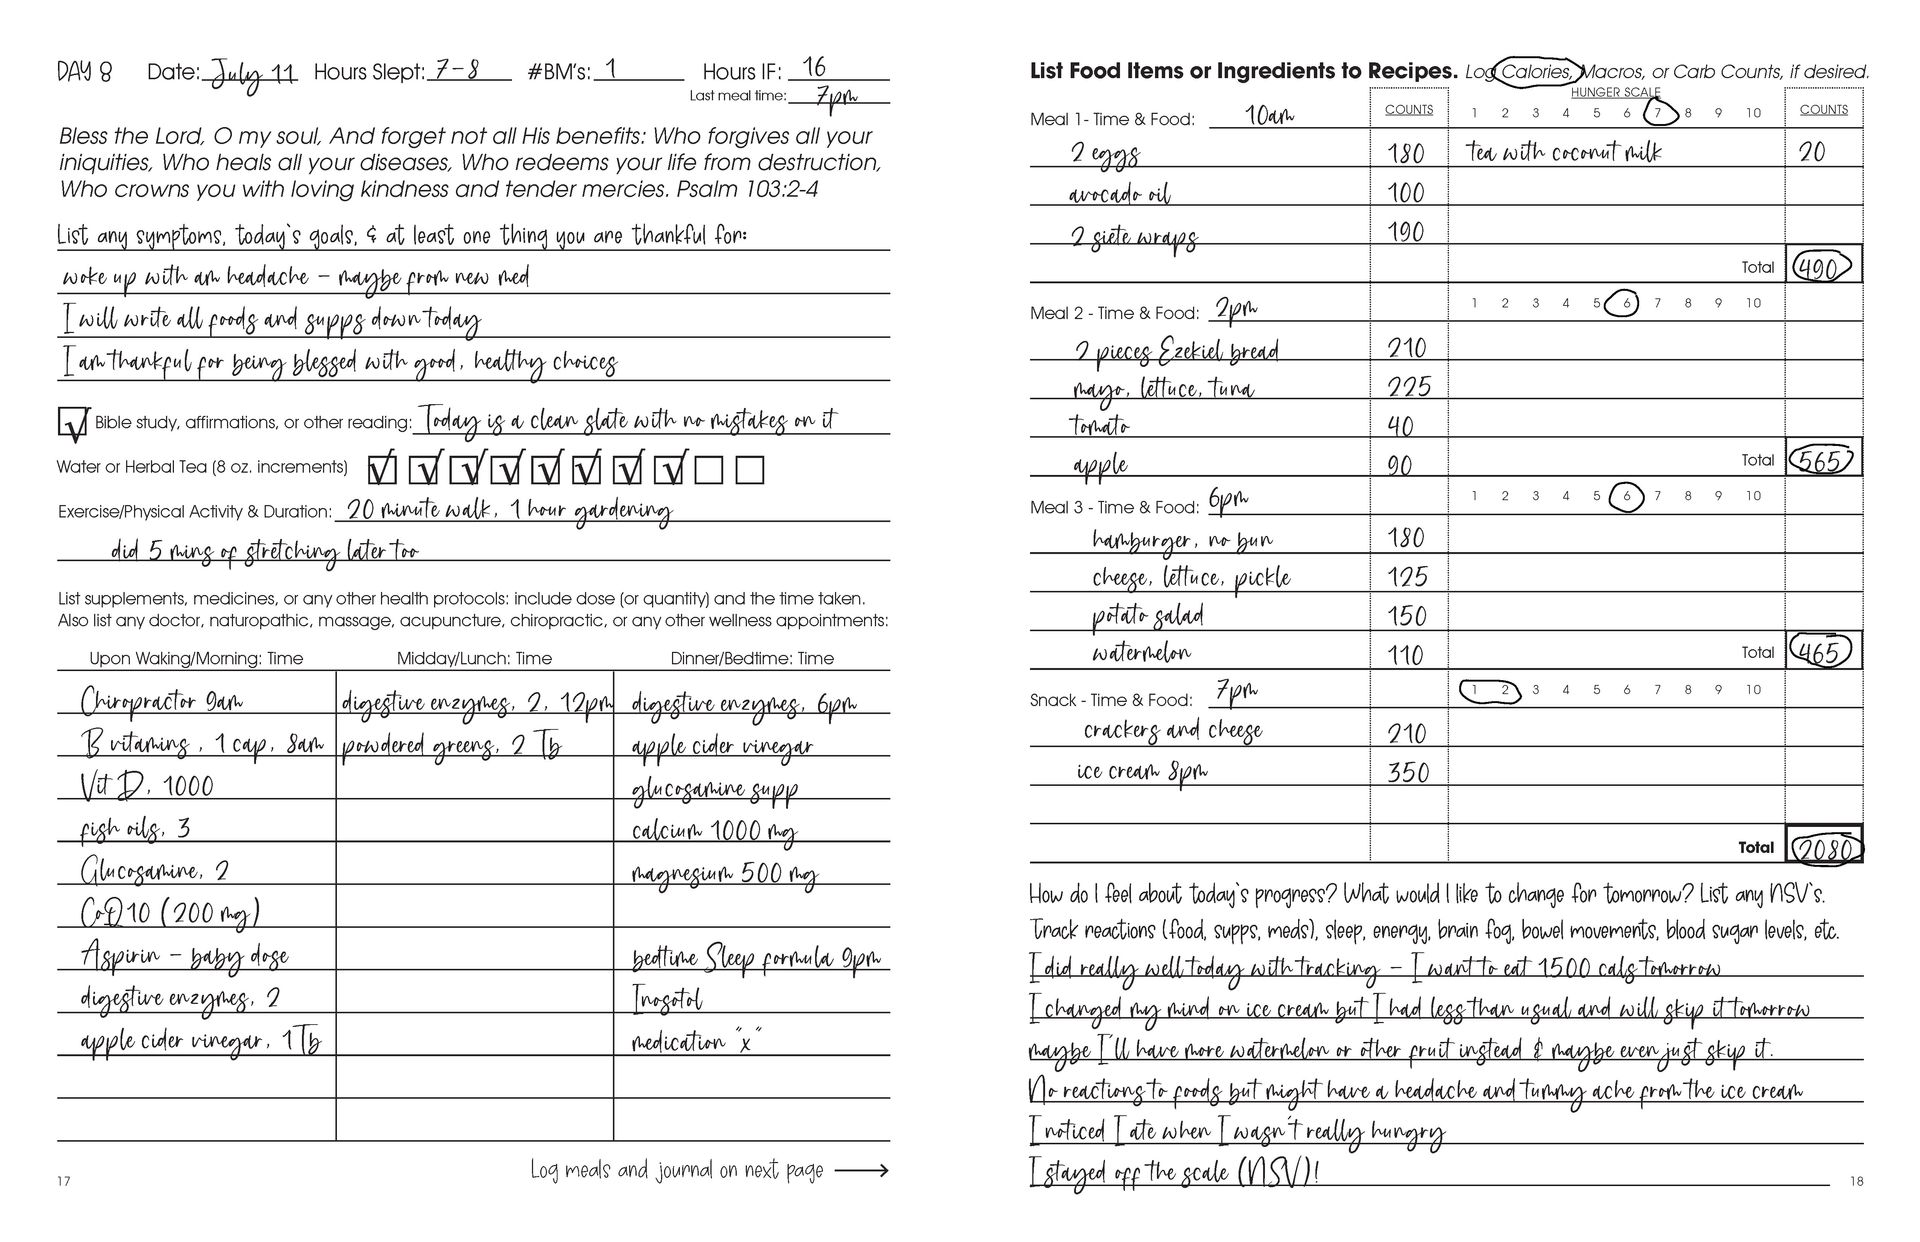 DAY 8 Date: July 11 Hours Slept: 7-8 #BM's: 1 Hours IF: 16
Last meal time: 7pm
Bless the Lord, O my soul, And forget not all His benefits: Who forgives all your
iniquities, Who heals all your diseases, Who redeems your life from destruction,
Who crowns you with loving kindness and tender mercies. Psalm 103:2-4
List any symptoms, today's goals, & at least one thing you are thankful for:
woke up with am headache - maybe from new med
I will write all foods and supps down today
I am thankful for being blessed with good, healthy choices
Bible study, affirmations, or other reading: Today is a clean slate with no mistakes on it
Water or Herbal Tea (8 oz. increments)
Exercise/Physical Activity & Duration: 20 minute walk, 1 hour gardening
did 5 mins of stretching later too
List supplements, medicines, or any other health protocols: include dose (or quantity) and the time taken.
Also list any doctor, naturopathic, massage, acupuncture, chiropractic, or any other wellness appointments:
Upon Waking/Morning: Time Midday/Lunch: Time Dinner/Bedtime: Time
Chiropractor 9am digestive enzymes, 2, 12pm digestive enzymes, 6pm
B vitamins, 1 cap, 8am powdered greens, 2 Tb apple cider vinegar
Vit D, 1000 glucosamine supp
fish oils, 3 calcium 1000 mg
Glucosamine, 2 magnesium 500 mg
CoQ10 (200 mg)
Aspirin - baby dose bedtime Sleep formula 9pm
digestive enzymes, 2 Inosotol
apple cider vinegar, 1 Tb medication "x"
Log meals and journal on next page
17
List Food Items or Ingredients to Recipes. Log Calories, Macros, or Carb Counts, if desired.
HUNGER SCALE
Meal 1- Time & Food: 10am COUNTS 1 2 3 4 5 6 7 8 9 10 COUNTS
2 eggs 180 tea with coconut milk 20
avocado oil 100
2 siete wraps 190
Total 490
Meal 2 - Time & Food: 2pm 1 2 3 4 5 6 7 8 9 10
2 pieces Ezekiel bread 210
mayo, lettuce, tuna 225
tomato 40
apple 90 Total 565
Meal 3 - Time & Food: 6pm 1 2 3 4 5 6 7 8 9 10
hamburger, no bun 180
cheese, lettuce, pickle 125
potato salad 150
watermelon 110 Total 465
Snack - Time & Food: 7pm 1 2 3 4 5 6 7 8 9 10
crackers and cheese 210
ice cream 8pm 350
Total 2080
How do I feel about today's progress? What would I like to change for tomorrow? List any NSV's.
Track reactions (food, supps, meds), sleep, energy, brain fog, bowel movements, blood sugar levels, etc.
I did really well today with tracking - I want to eat 1500 cals tomorrow
I changed my mind on ice cream but I had less than usual and will skip it tomorrow
maybe I'll have more watermelon or other fruit instead & maybe even just skip it.
No reactions to foods but might have a headache and tummy ache from the ice cream
I noticed I ate when I wasn't really hungry
I stayed off the scale (NSV)!
18